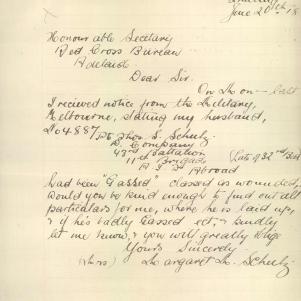 June 20th 18
Honourable Secretary
Red Cross Bureau
Adelaide
Dear Sir.
On the on — last
I recieved notice from the Military,
Melbourne, stating my husband,
No 4887 Pte Thos. S. Schulz.
D. Company
43rd Battalion
11th Brigade (Late of 32nd Batt
A I F Abroad
had been "Gassed" classed as wounded,
would you be kind enough to find out all
particulars for me, where he is laid up,
& if he's badly Gassed etc, – kindly
let me know, & you will greatly oblige
Yours Sincerely
(Mrs) Margaret M. Schultz.